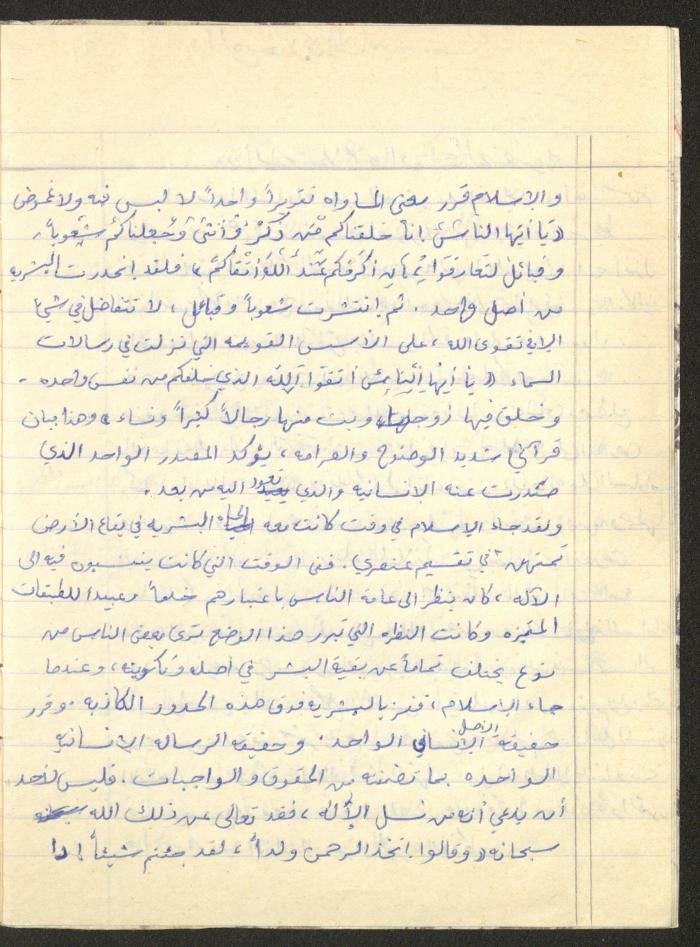 والاسلام قرر معنى المساواه تقريراً واحداً لا لبس فيه ولا غموض
(( يَا أيّها الناسُ إنّا خلقناكم مّن ذَكَرٍ وَأُنثَى وَجَعلناكُم شعُوباً
وقبائلَ لتَعارفَوا إن أكرَمَكم عِنْدَ اللَّهِ أتقَاكُم )) فلقد انحدرت البشريه
من أصل واحد . ثم انتشرت شعوباً وقبائل ، لا تتفاضل في شيء
الا في تقوى الله ، على الأسس القويمه التي نزلت في رسالات
السماء (( يا أيها الناسُ اتقوا اللَّه الذي خلقكم من نفس واحده -
وخلق منها زوجها وبث منهما رجالاً كثيراً ونساء )) وهنا بيان
قرآني شديد الوضوح والصرامه ، يؤكد المصدر الواحد الذي
صدرت عنه الانسانيه والذي تعود اليه من بعد .
ولقد جاء الإسلام في وقت كانت فيه الحياه البشريه في بقاع الأرض
تمتهن في تقسيم عنصري . ففي الوقت التي كانت ينتسبون فيه الى
الآله ، كان ينظر الى عامة الناس باعتبارهم خدماً وعبيدا للطبقات
المتميزه وكانت النظره التي تبرر هذا الوضع ترى بعض الناس من
نوع يختلف تماماً عن بقية البشر في أصله وتكوينه ، وعندما
جاء الإسلام ، قفز بالبشريه فوق هذه الحدود الكاذبه . وقرر
حقيقة الاصل الإنساني الواحد . وحقيقة الرساله الانسانيه
الواحده بما تضمنه من الحقوق والواجبات . فليس لأحد
أن يدعي أنه من نسل الإله ، فقد تعالى عن ذلك الله
سبحانه (( وقالوا اتخذ الرحمن ولداً ، لقد جئتم شيئاً إدا